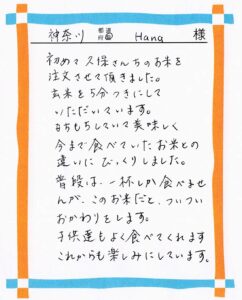 神奈川 都道府県 Hana 様
初めて久保さんちのお米を
注文させて頂きました。
玄米を5分つきにして
いただいています。
もちもちしていて美味しく
今まで食べていたお米との
違いにびっくりしました。
普段は一杯しか食べませ
んが、このお米だと、ついつい
おかわりをします。
子供達もよく食べてくれます
これからも楽しみにしています。